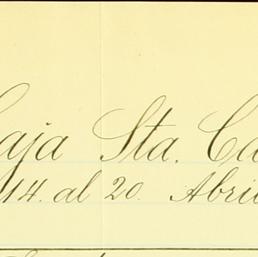 Caja Sta. Ca
14. al 20. Abri